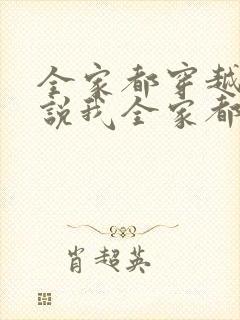 全家都穿越
說我全家都
肖超英